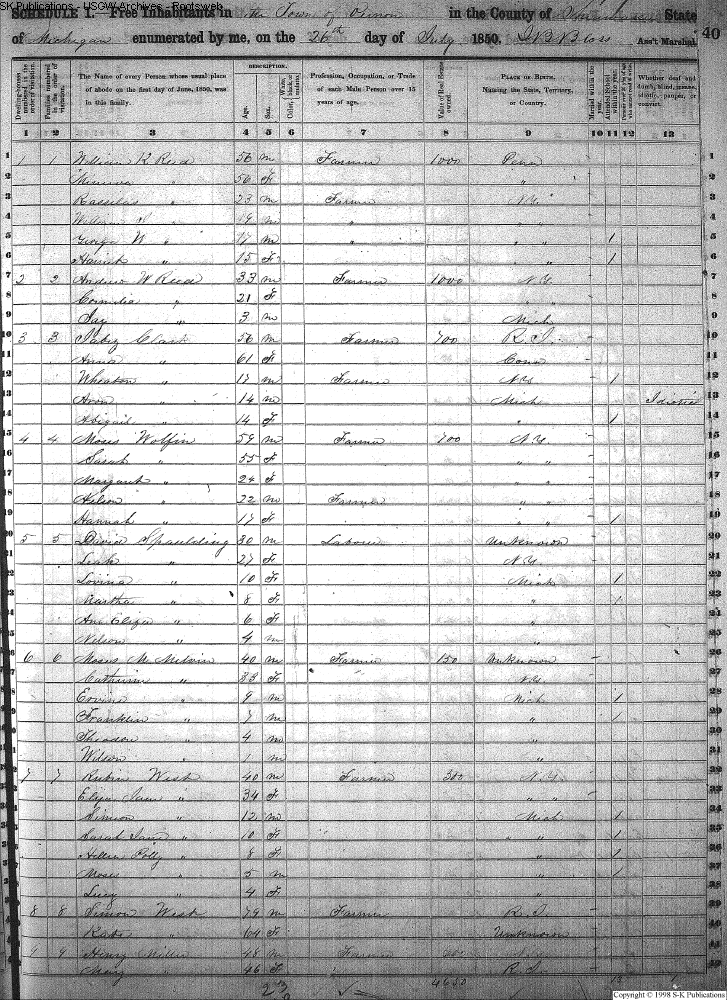 SK Publications - USGW Archives - Rootsweb
SCHEDULE I.—Free Inhabitants in the Town of in the County of State
of Michigan enumerated by me, on the 26th day of July 1850. Ass't Marshal. 40
DESCRIPTION.
Dwelling-houses numbered in the order of visitation. Families numbered in the order of visitation. The Name of every Person whose usual place of abode on the first day of June, 1850, was in this family. Age. Sex. Color, White, black, or mulatto. Profession, Occupation, or Trade of each Male Person over 15 years of age. Value of Real Estate owned. PLACE OF BIRTH. Naming the State, Territory, or Country. Married within the year. Attended School within the year. Whether deaf and dumb, blind, insane, idiotic, pauper, or convict.
1 2 3 4 5 6 7 8 9 10 11 12 13
1 1 1 William K Reed 56 m Farmer 1000 Penn 1
2 Minerva " 50 F " 2
3 Rasselas " 23 m Farmer N.Y. 3
4 William " 19 m " 4
5 George W " 17 m " " 1 5
6 Harriet " 15 F " 1 6
7 2 2 Andrew W Reed 33 m Farmer 1000 N.Y. 7
8 Cornelia " 21 F " 8
9 Jay " 3 m Mich 9
10 3 3 Jabez Clark 56 m Farmer 700 R.I. 10
11 Anna " 61 F Conn 11
12 Wheaton " 17 m Farmer N.Y. 1 12
13 Avon " 14 m Mich Idiotic 13
14 Abigail " 14 F " 1 14
15 4 4 Moses Wolfin 59 m Farmer 700 N.Y. 15
16 Sarah " 55 F " " 16
17 Margaret " 24 F " " 17
18 Nelson " 22 m Farmer " " 18
19 Hannah " 17 F " " 1 19
20 5 5 David Spaulding 30 m Laborer Unknown 20
21 Leah " 27 F N.Y. 21
22 Lovina " 10 F Mich 1 22
23 Martha " 8 F " 1 23
24 Ann Eliza " 6 F " 24
25 Nelson " 4 m " 25
26 6 6 Moses M Melvin 40 m Farmer 150 Unknown 26
27 Catharine " 33 F N.Y. 27
28 " 9 m Mich 1 28
29 Franklin " 7 m " 1 29
30 Theodore " 4 m " 30
31 Wilson " 1 m " 31
32 7 7 Rubin West 40 m Farmer 300 N.Y. 32
Eliza Jane " 34 F " "
Simon " 12 m Mich 1
Sarah Jane " 10 F " " 1
Hellen Polly " 8 F " 1
Moses " 5 m " 1
Lucy " 4 F "
8 8 Simon West 79 m Farmer R.I.
" 64 F Unknown
9 9 Henry Miller 48 m Farmer
Mary " 46 F R.I.
4650 13
Copyright © 1998 S-K Publications